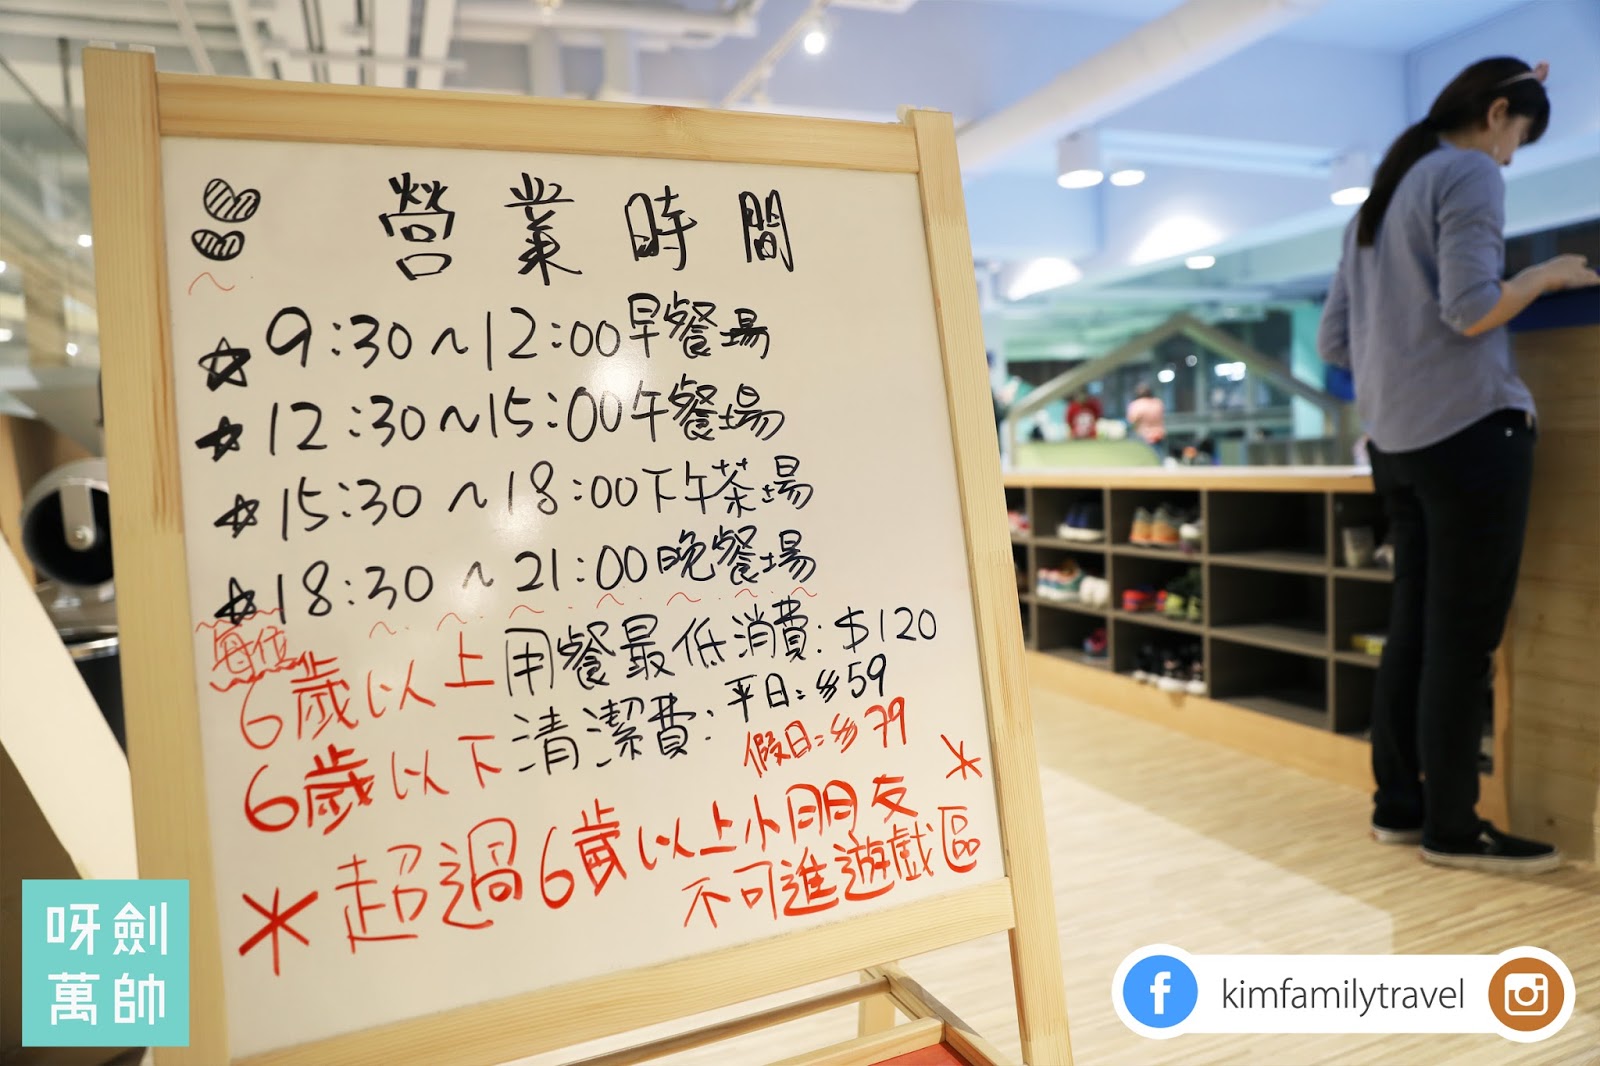 營業時間
9:30~12:00早餐場
12:30~15:00午餐場
15:30~18:00下午茶場
18:30~21:00晚餐場
每位
6歲以上用餐最低消費:$120
6歲以下清潔費:平日:$59
假日:$79
*超過6歲以上小朋友*
不可進遊戲區
呀劍
萬帥
kimfamilytravel